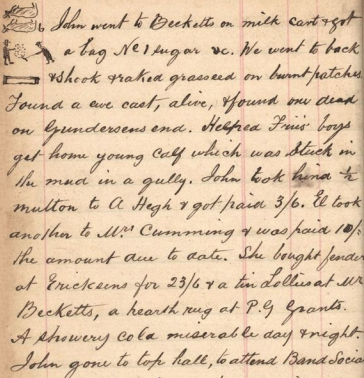 John went to Becketts on milk cart & got
a bag No 1 sugar &c. We went to back
& shook & raked grasseed on burnt patches
Found a ewe cast, alive, & found one dead
on Gundersens end. Helped Friis' boys
get home young calf which was stuck in
the mud in a gully. John took hind ½
mutton to A Hegh & got paid 3/6. El took
another to Mrs Cumming & was paid 10/-
the amount due to date. She bought fender
at Ericksens for 23/6 & a tin Lollies at Mr
Becketts, a hearth rug at P.G Grants.
A showery cold miserable day & night.
John gone to top hall, to attend Band Socia